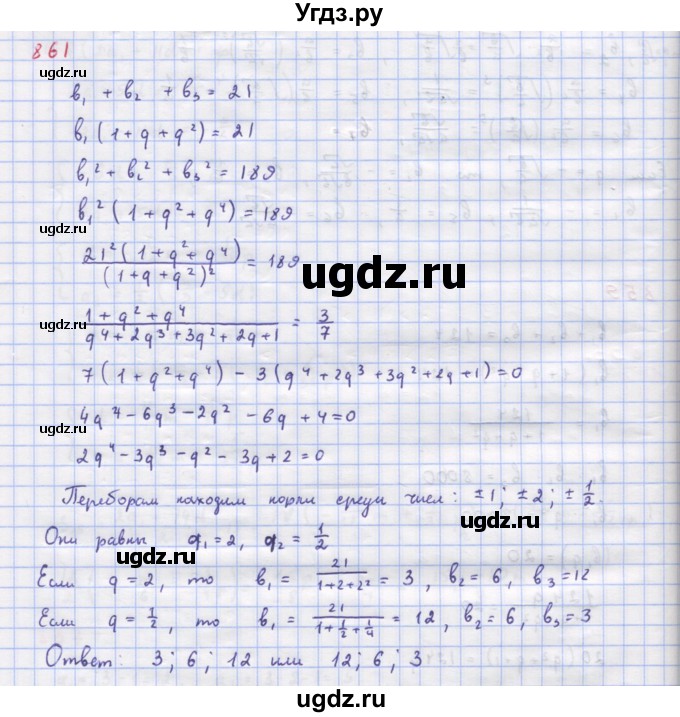 Угдз.ру
861
ugdz.ru
b₁ + b₂ + b₃ = 21
b₁ (1 + q + q²) = 21
b₁² + b₂² + b₃² = 189
b₁² (1 + q² + q⁴) = 189
ugdz.ru
21² (1 + q² + q⁴) / (1 + q + q²)² = 189
ugdz.ru
ugdz.ru
1 + q² + q⁴ / q⁴ + 2q³ + 3q² + 2q + 1 = 3/7
7 (1 + q² + q⁴) - 3 (q⁴ + 2q³ + 3q² + 2q + 1) = 0
ugdz.ru
4q⁴ - 6q³ - 2q² - 6q + 4 = 0
2q⁴ - 3q³ - q² - 3q + 2 = 0
Перебором находим корни среди чисел: ±1; ±2; ± 1/2.
ugdz.ru
Они равны q₁ = 2, q₂ = 1/2
ugdz.ru
Если q = 2, то b₁ = 21 / 1+2+2² = 3, b₂ = 6, b₃ = 12
Если q = 1/2, то b₁ = 21 / 1 + 1/2 + 1/4 = 12, b₂ = 6, b₃ = 3
ugdz.ru
Ответ: 3; 6; 12 или 12; 6; 3
ugdz.ru
ugdz.ru